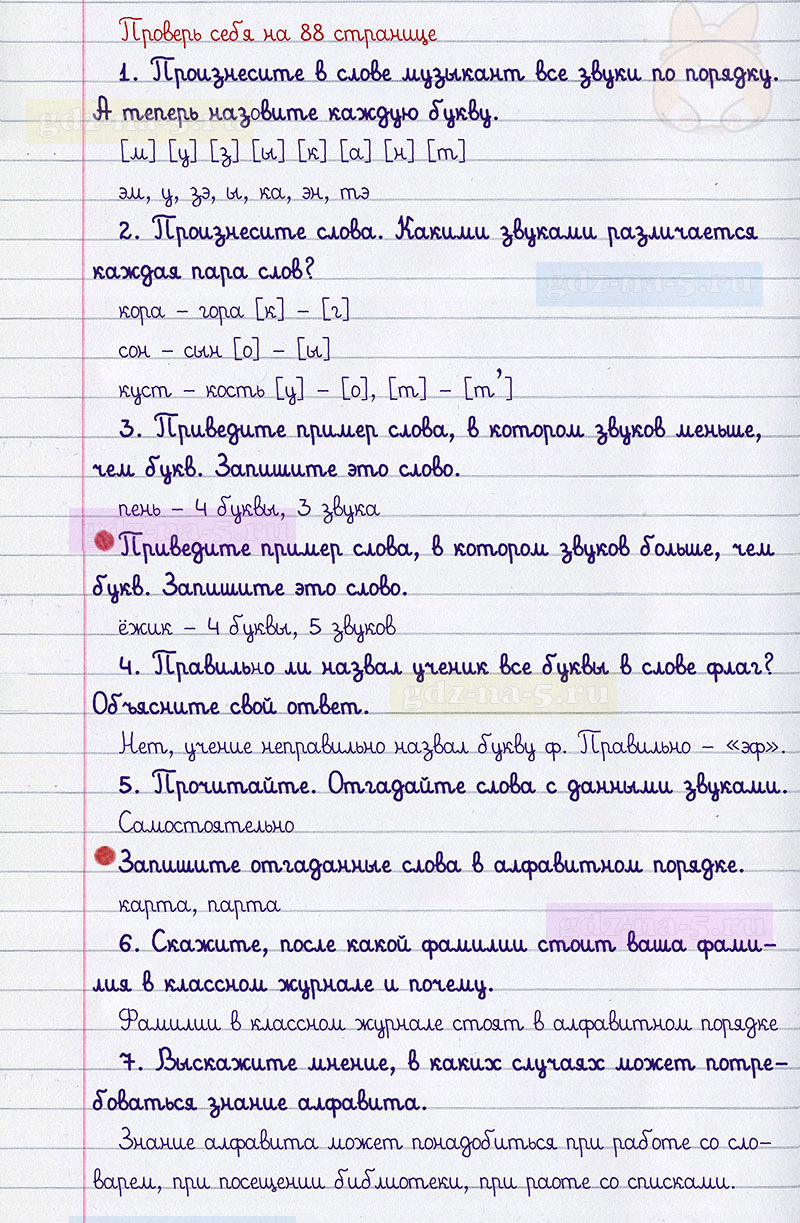 Проверь себя на 88 странице
1. Произнесите в слове музыкант все звуки по порядку.
А теперь назовите каждую букву.
gdz-na-5.ru
[м] [у] [з] [ы] [к] [а] [н] [т]
эм, у, зэ, ы, ка, эн, тэ
2. Произнесите слова. Какими звуками различается
каждая пара слов?
gdz-na-5.ru
кора – гора [к] – [г]
сон – сын [о] – [ы]
куст – кость [у] – [о], [т] – [т’]
3. Приведите пример слова, в котором звуков меньше,
чем букв. Запишите это слово.
пень – 4 буквы, 3 звука
gdz-na-5.ru
Приведите пример слова, в котором звуков больше, чем
букв. Запишите это слово.
ёжик – 4 буквы, 5 звуков
4. Правильно ли назвал ученик все буквы в слове флаг?
gdz-na-5.ru
Объясните свой ответ.
Нет, учение неправильно назвал букву ф. Правильно – «эф».
5. Прочитайте. Отгадайте слова с данными звуками.
Самостоятельно
Запишите отгаданные слова в алфавитном порядке.
карта, парта
gdz-na-5.ru
6. Скажите, после какой фамилии стоит ваша фами–
лия в классном журнале и почему.
Фамилии в классном журнале стоят в алфавитном порядке
7. Выскажите мнение, в каких случаях может потре–
боваться знание алфавита.
Знание алфавита может понадобиться при работе со сло–
варем, при посещении библиотеки, при раоте со списками.